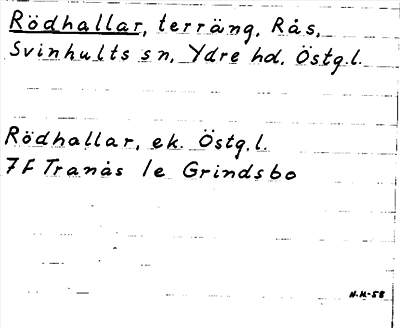 Rödhallar, terräng. Rås,
Svinhults sn, Ydre hd. Östg.l.
Rödhallar, ek. Östg.l.
7F Tranås 1e Grindsbo
N.H-58